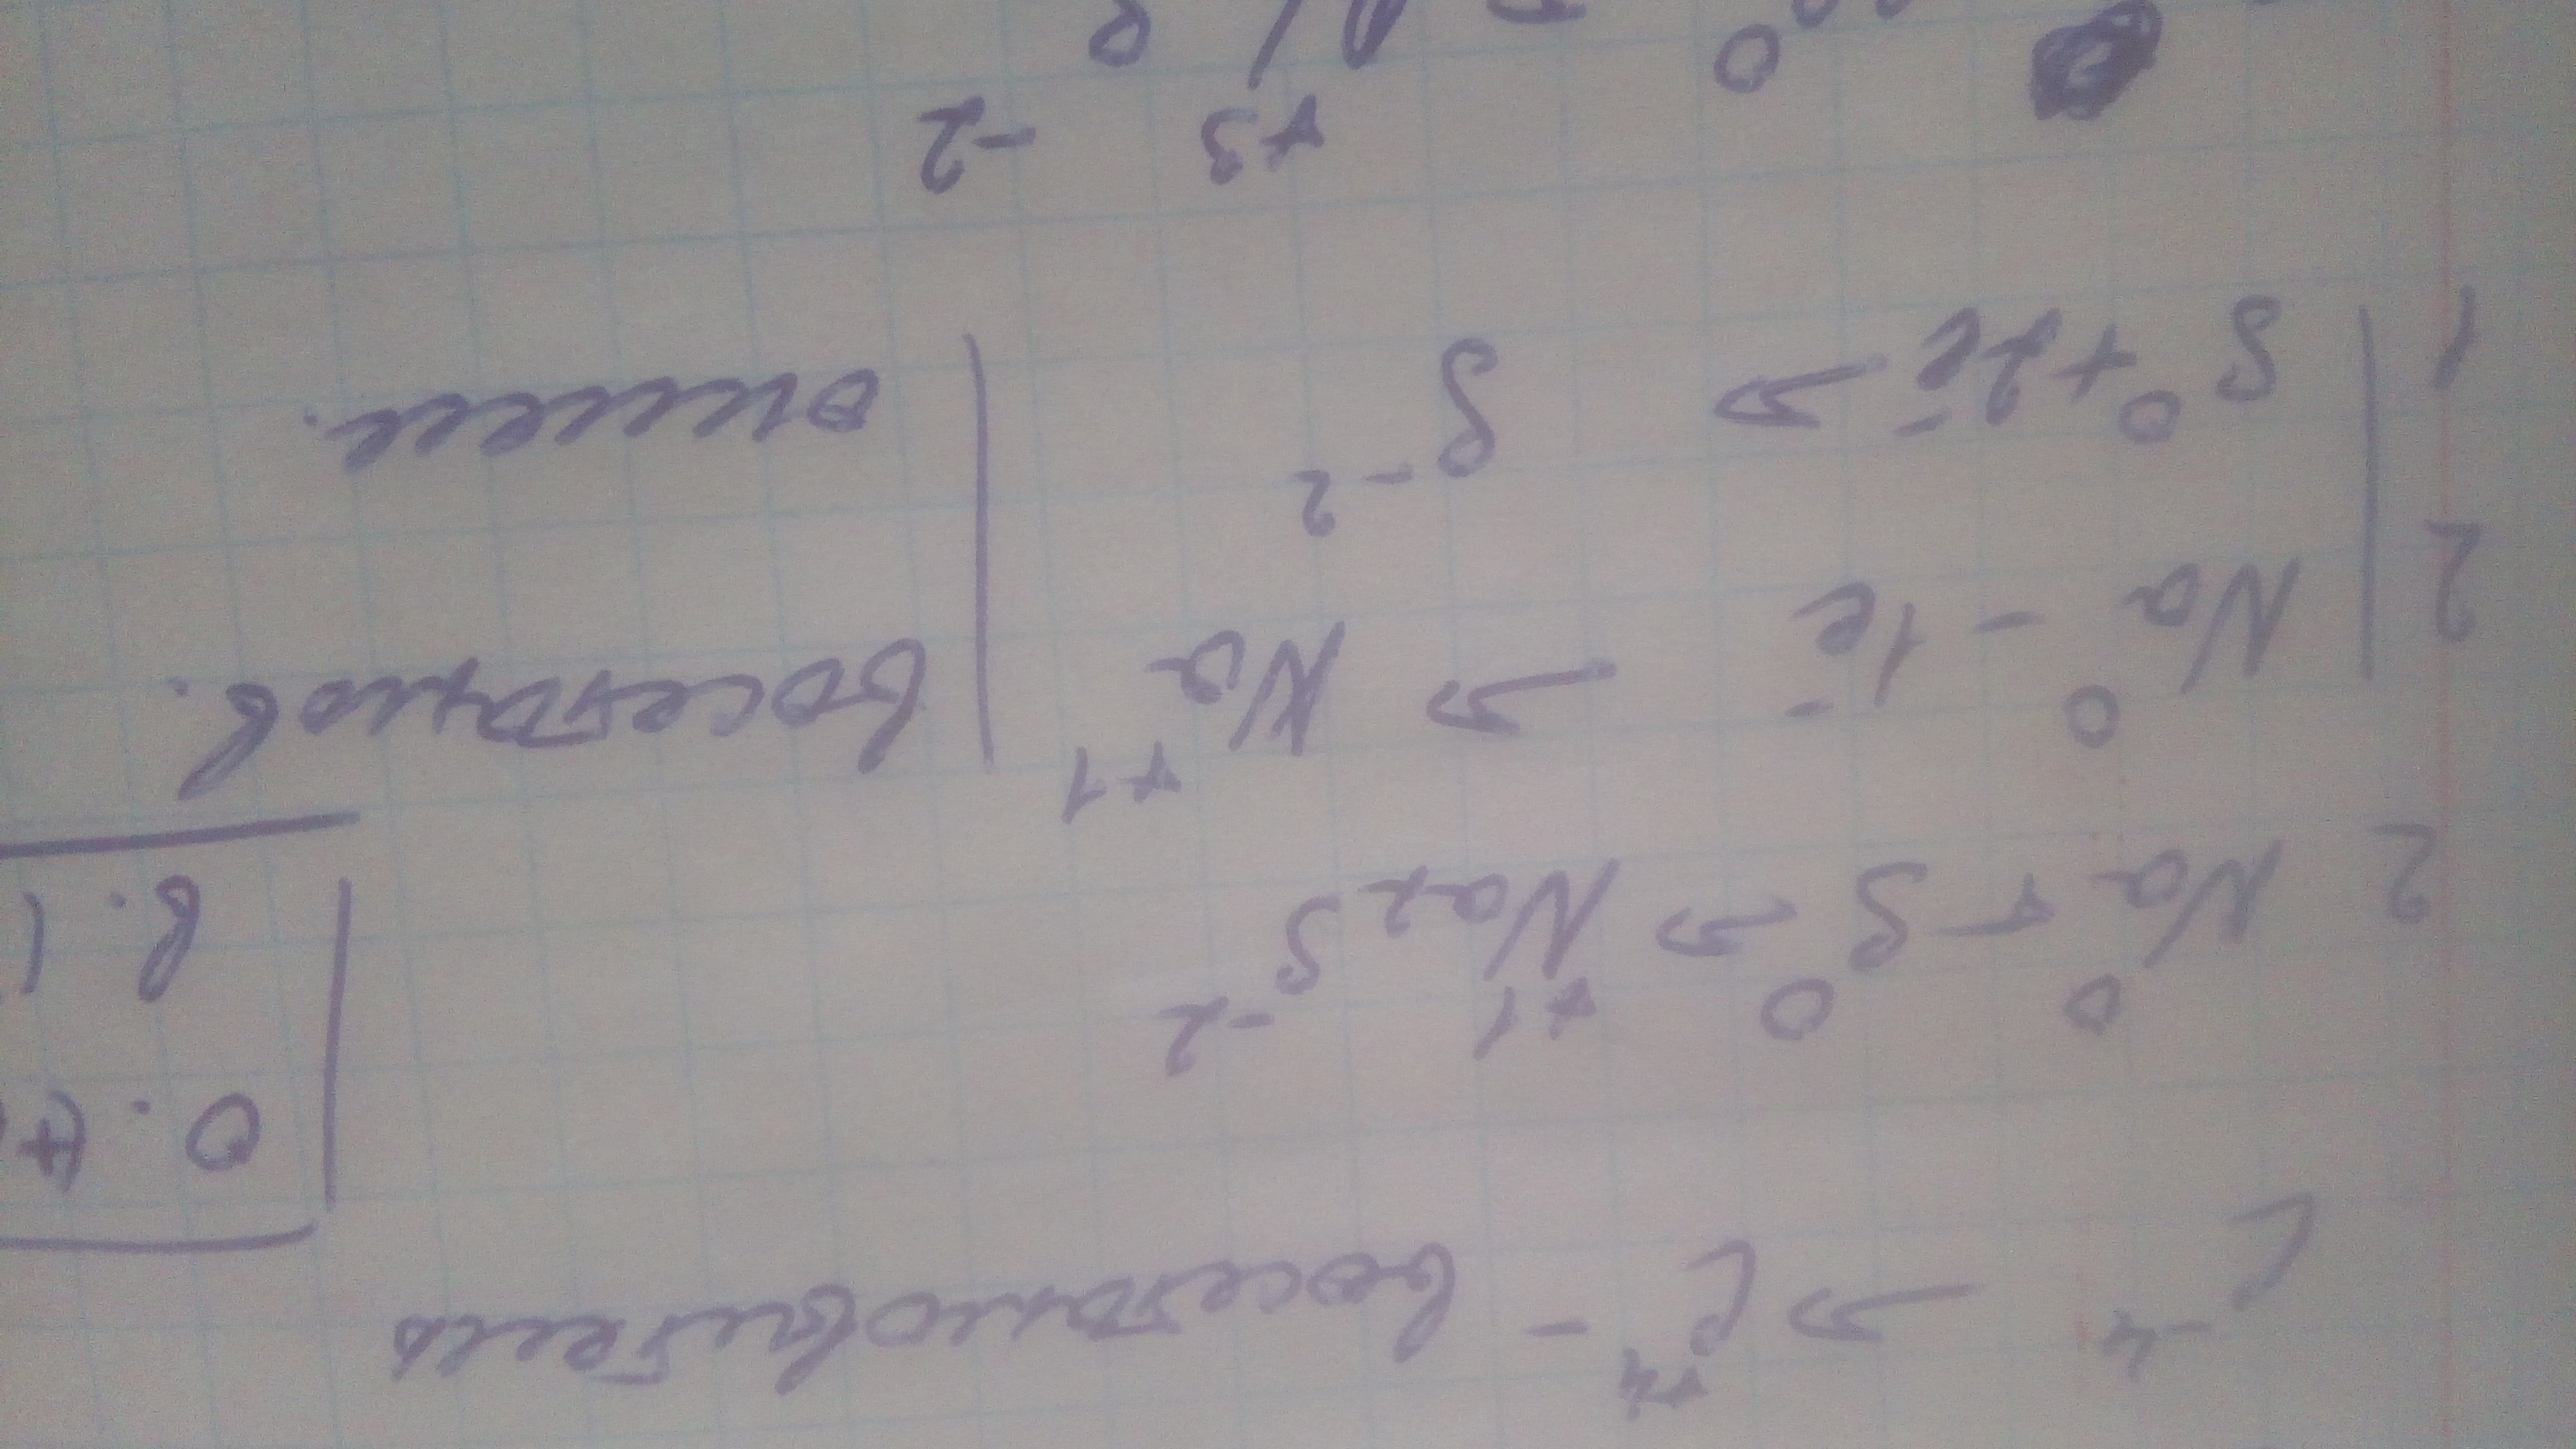 C⁻⁴ → C⁺⁴ - восстановитель
O. +
B. 1
2 Na⁰ + S⁰ → Na₂⁺¹S⁻²
2 | Na⁰ - 1e⁻ → Na⁺¹ | восстанов.
1 | S⁰ + 2e⁻ → S⁻² | окисл.
+3 -2
0